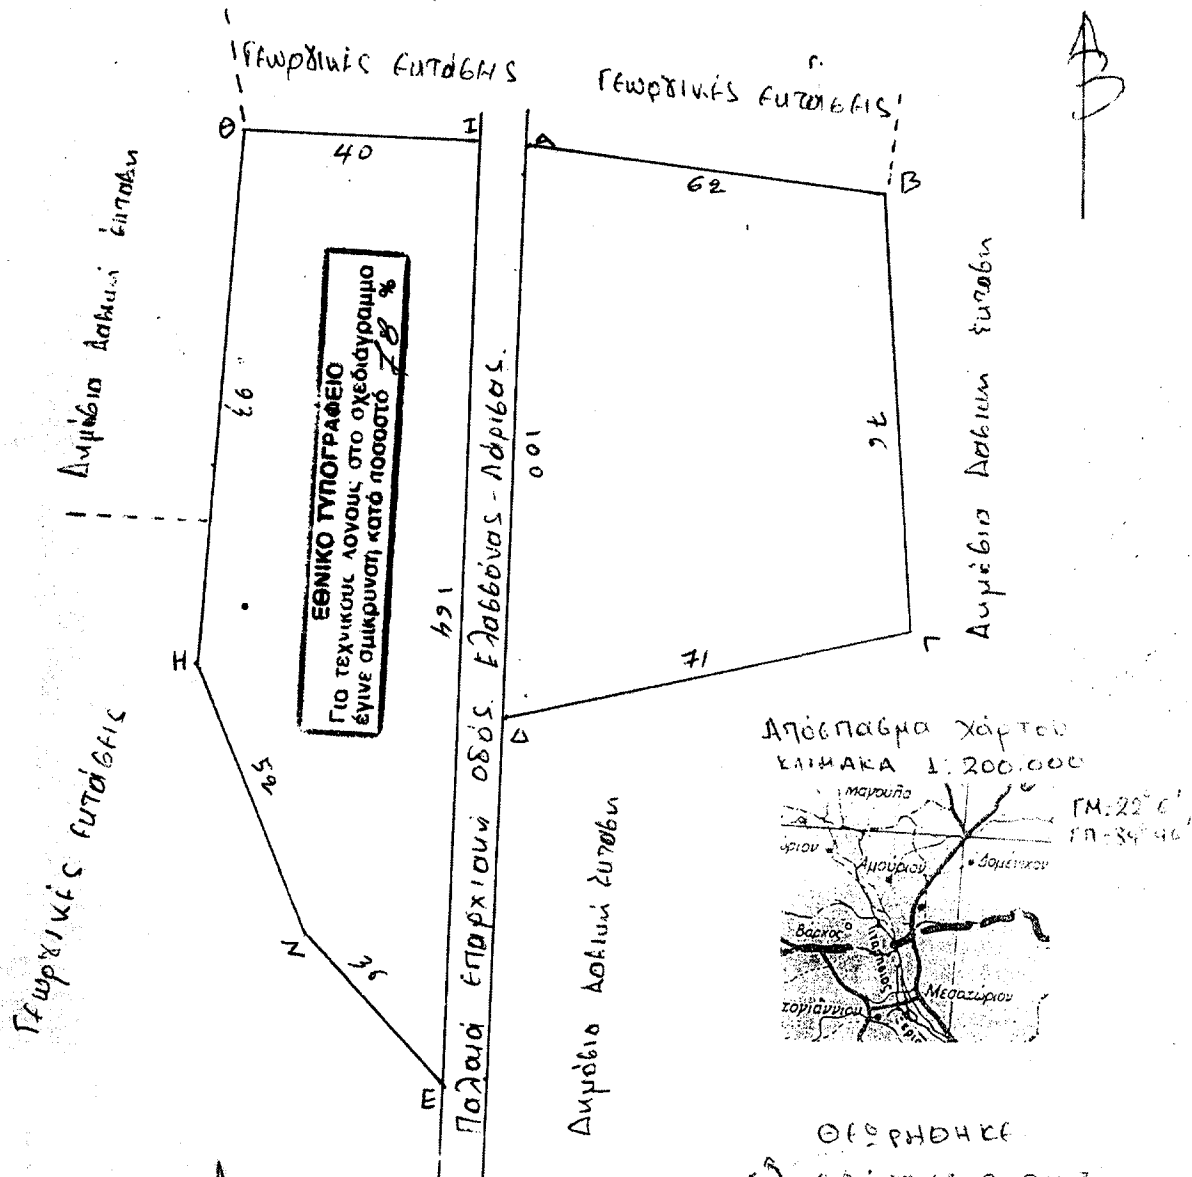 Γεωργικές εκτάσεις
Γεωργικές εκτάσεις
Β
Θ
Ι
Α
Β
40
62
Δημόσια Δασική έκταση
93
ΕΘΝΙΚΟ ΤΥΠΟΓΡΑΦΕΙΟ
Για τεχνικους λόγους στο σχεδιάγραμμα
έγινε σμίκρυνση κατά ποσοστό 78 %
164
Παλαιά επαρχιακή οδός Ελασσόνας - Λάρισας.
100
76
Δημόσια Δασική έκταση
Γ
71
Δ
Η
Γεωργικές εκτάσεις
Ζ
Ε
Δημόσια Δασική έκταση
Απόσπασμα χάρτου
ΚΛΙΜΑΚΑ 1:200.000
Μαγούλα
Αμούριον
Δομένικον
Μεσοχώριον
ΘΕΩΡΗΘΗΚΕ